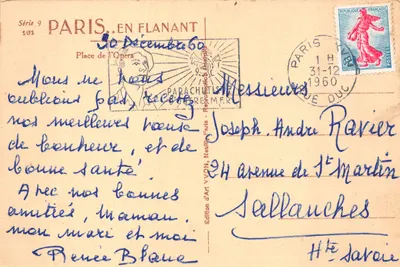 Série 9
101
PARIS... EN FLANANT
30 Décembre 60
Place de l'Opéra
PARIS
1 H
31-12
1960
RUE DUC
PARACHUTI
Nous ne vous
oublions pas, recevez
nos meilleurs vœux
de bonheur, et de
bonne santé.
Avec nos bonnes
amitiés, Maman,
mon mari et moi
Renée Blanc
Edition d'Art YVON
Messieurs
Joseph-André Ravier
24 avenue de St Martin
Sallanches
Hte Savoie